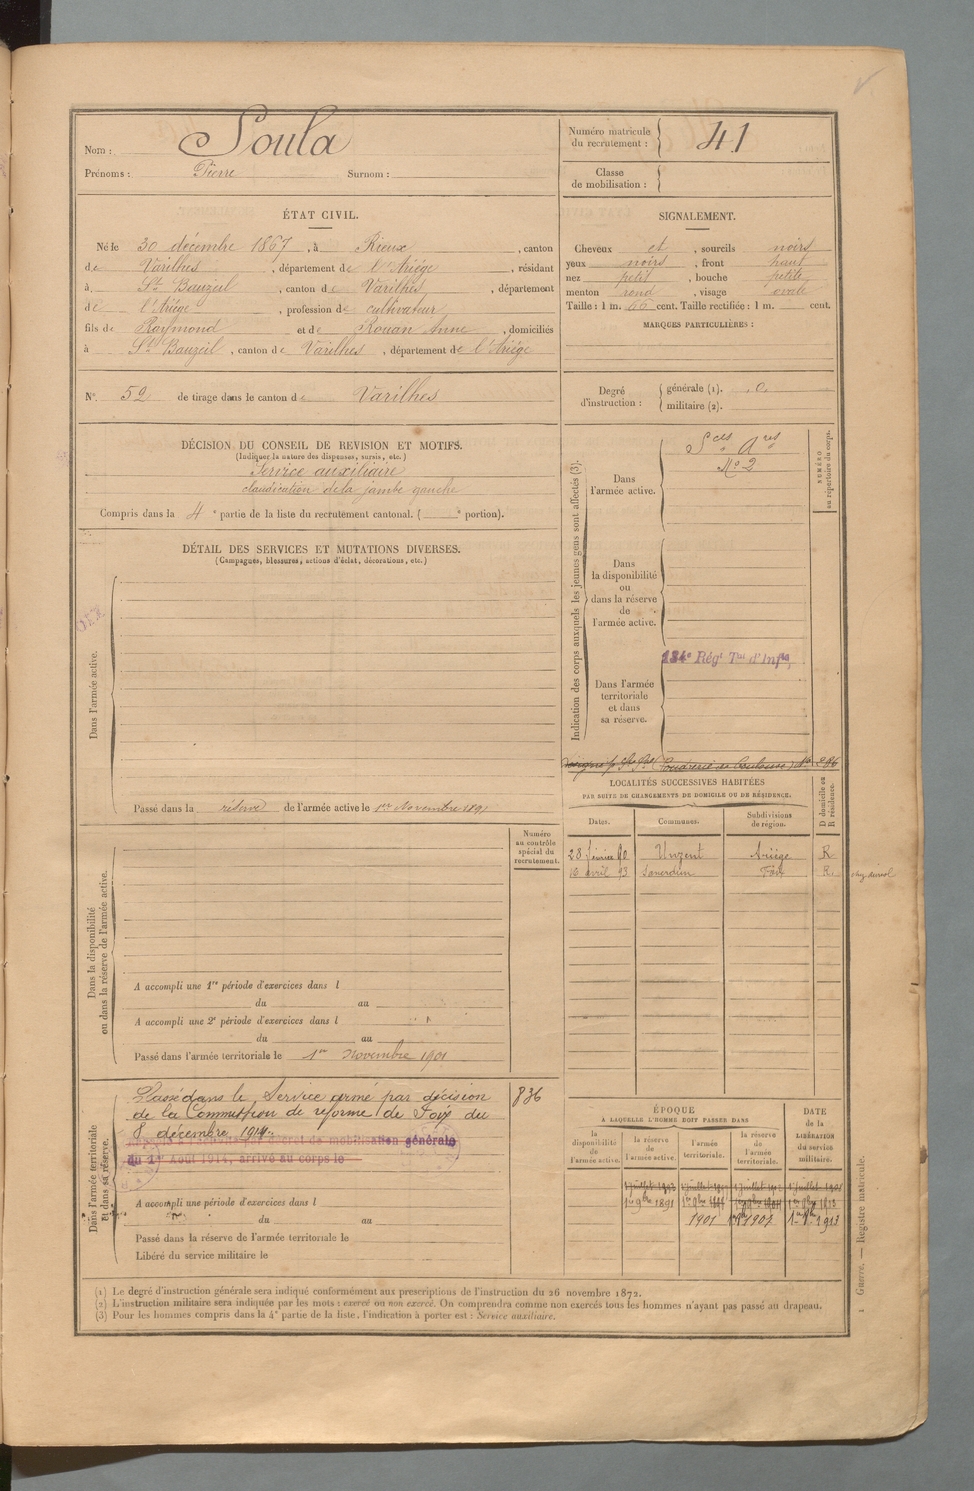 Nom : Soula
Prénoms : Pierre Surnom :
Numéro matricule du recrutement : 41
Classe de mobilisation :
ÉTAT CIVIL.
Né le 30 décembre 1867, à Rieux, canton
de Varilhes, département de l'Ariége, résidant
à St Bauzeil, canton de Varilhes, département
de l'Ariége, profession de cultivateur
fils de Raymond et de Rouan Anne, domiciliés
à St Bauzeil, canton de Varilhes, département de l'Ariége
SIGNALEMENT.
Cheveux et, sourcils noirs
yeux noirs, front haut
nez petit, bouche petite
menton rond, visage ovale
Taille : 1 m. cent. Taille rectifiée : 1 m. cent.
MARQUES PARTICULIÈRES :
N° 52 de tirage dans le canton de Varilhes
Degré d'instruction : générale (1). 0
militaire (2).
DÉCISION DU CONSEIL DE REVISION ET MOTIFS.
(Indiquer la nature des dispenses, sursis, etc.)
Service auxiliaire
claudication de la jambe gauche
Compris dans la 4e partie de la liste du recrutement cantonal. ( e portion).
DÉTAIL DES SERVICES ET MUTATIONS DIVERSES.
(Campagnes, blessures, actions d'éclat, décorations, etc.)
Dans l'armée active.
Passé dans la réserve de l'armée active le 1er Novembre 1891
Indication des corps auxquels les jeunes gens sont affectés (3).
NUMÉRO au répertoire du corps.
Dans l'armée active.
Sces Ares
No 2
Dans la disponibilité ou dans la réserve de l'armée active.
134e Régt Tal d'Infie
Dans l'armée territoriale et dans sa réserve.
LOCALITÉS SUCCESSIVES HABITÉES
PAR SUITE DE CHANGEMENTS DE DOMICILE OU DE RÉSIDENCE.
Dates. Communes. Subdivisions de région. D domicile ou R résidence.
28 février 90 Unzent Ariége R
16 avril 93 Saverdun Foix R.
Numéro au contrôle spécial du recrutement.
Dans la disponibilité ou dans la réserve de l'armée active.
A accompli une 1re période d'exercices dans l
du au
A accompli une 2e période d'exercices dans l
du au
Passé dans l'armée territoriale le 1er Novembre 1901
Dans l'armée territoriale et dans sa réserve.
Passé dans le Service armé par décision 836
de la Commission de réforme de Foix du
8 décembre 1914.
Rappelé à l'activité par décret de mobilisation générale
du 1er Août 1914, arrivé au corps le
A accompli une période d'exercices dans l
du au
Passé dans la réserve de l'armée territoriale le
Libéré du service militaire le
ÉPOQUE
À LAQUELLE L'HOMME DOIT PASSER DANS
DATE DE LA LIBÉRATION du service militaire.
la disponibilité de l'armée active. la réserve de l'armée active. l'armée territoriale. la réserve de l'armée territoriale.
1er 9bre 1891
1901 1907 1er 9bre 1913
(1) Le degré d'instruction générale sera indiqué conformément aux prescriptions de l'instruction du 26 novembre 1872.
(2) L'instruction militaire sera indiquée par les mots : exercé ou non exercé. On comprendra comme non exercés tous les hommes n'ayant pas passé au drapeau.
(3) Pour les hommes compris dans la 4e partie de la liste, l'indication à porter est : Service auxiliaire.
1 Guerre. — Registre matricule.